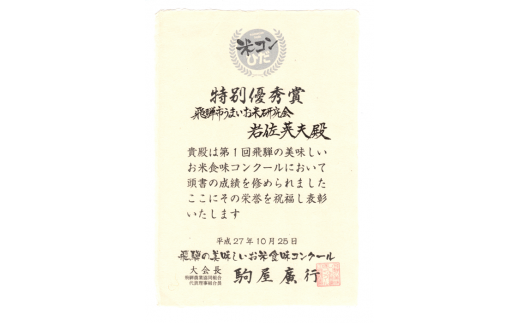 米コン
ひだ
特別優秀賞
飛騨市うまいお米研究会
岩佐英夫殿
貴殿は第1回飛騨の美味しい
お米食味コンクールにおいて
頭書の成績を修められました
ここにその栄誉を祝福し表彰
いたします
平成27年10月25日
飛騨の美味しいお米食味コンクール
大会長
飛騨農業協同組合
代表理事組合長
駒屋廣行